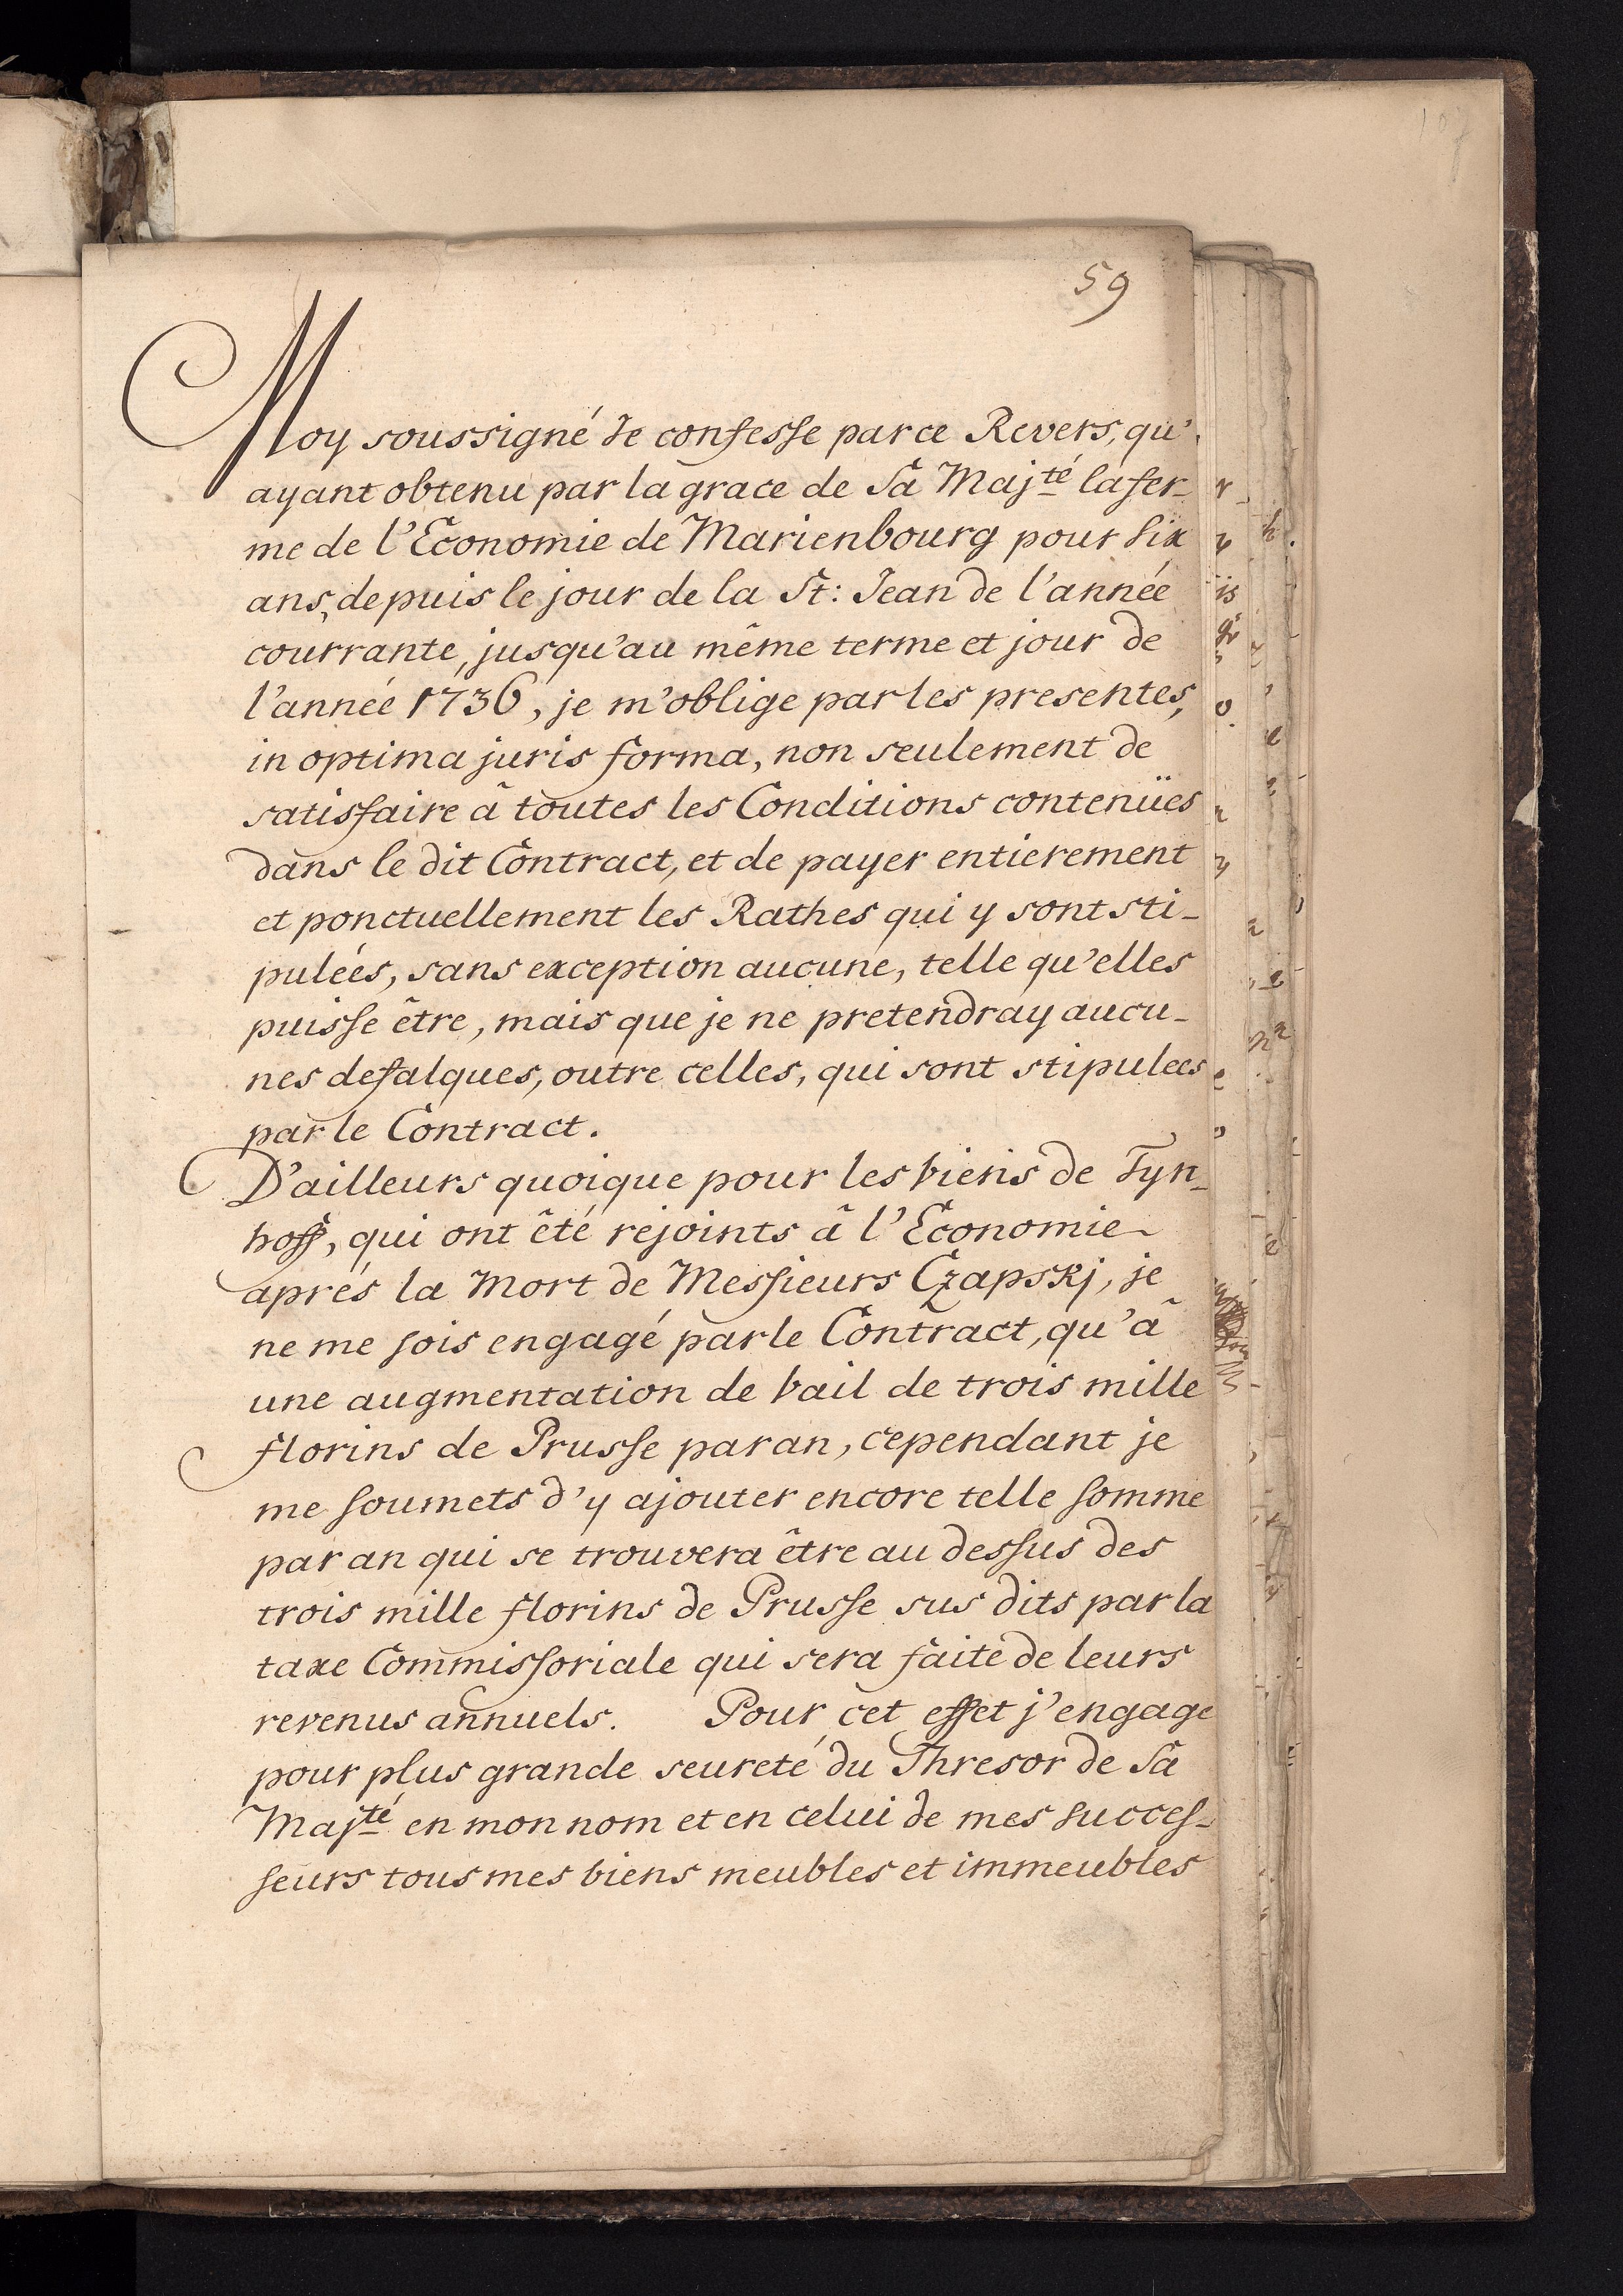 107
59
Moy soussigné Je confesse par ce Revers, qu'
ayant obtenu par la grace de Sa Maj^té la fer-
me de l'Economie de Marienbourg pour Six
ans, depuis le jour de la St: Jean de l'année
courrante, jusqu'au même terme et jour de
l'année 1736, je m'oblige par les presentes,
in optima juris forma, non seulement de
satisfaire â toutes les Conditions contenües
dans le dit Contract, et de payer entierement
et ponctuellement les Rathes qui y sont sti-
pulées, sans exception aucune, telle qu'elles
puisse être, mais que je ne pretendray aucu-
nes defalques, outre celles, qui sont stipulees
par le Contract.
D'ailleurs quoique pour les biens de Tyn-
hoff, qui ont êté rejoints â l'Economie
aprés la Mort de Messieurs Czapskj, je
ne me sois engagé par le Contract, qu'â
une augmentation de bail de trois mille
florins de Prusse par an, cependant je
me soumets d'y ajouter encore telle somme
par an qui se trouvera être au dessus des
trois mille florins de Prusse sus dits par la
taxe Commissoriale qui sera faite de leurs
revenus annuels. Pour cet effet j'engage
pour plus grande seureté du Thresor de Sa
Maj^té en mon nom et en celui de mes succes-
seurs tous mes biens meubles et immeubles